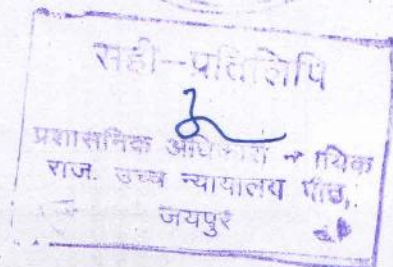 सही--प्रतिलिपि
प्रशासनिक न्यायिक
राज. उच्च न्यायालय पीठ,
जयपुर